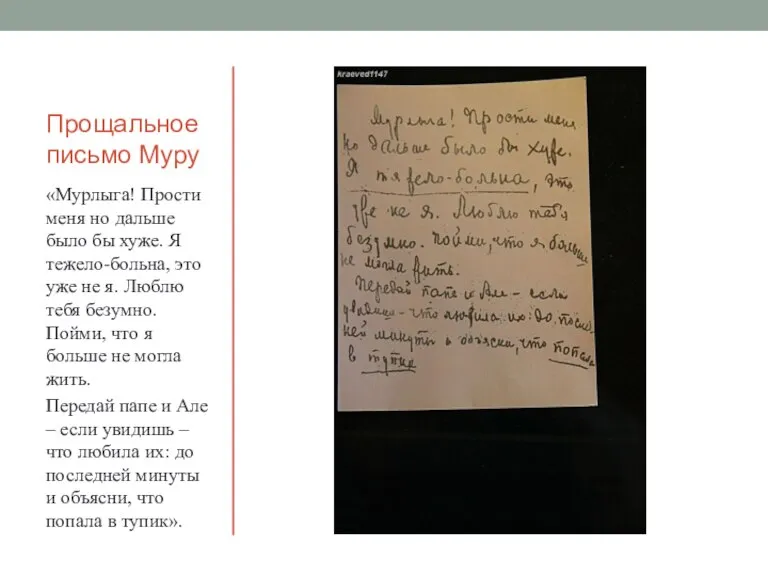 Прощальное
письмо Муру
«Мурлыга! Прости
меня но дальше
было бы хуже. Я
тежело-больна, это
уже не я. Люблю
тебя безумно.
Пойми, что я
больше не могла
жить.
Передай папе и Але
– если увидишь –
что любила их: до
последней минуты
и объясни, что
попала в тупик».
kraeved1147
Мурлыга! Прости меня
но дальше было бы хуже.
Я тяжело-больна, это
уже не я. Люблю тебя
безумно. Пойми, что я больше
не могла жить.
Передай папе и Але – если
увидишь – что любила их до послед
ней минуты и объясни, что попала
в тупик